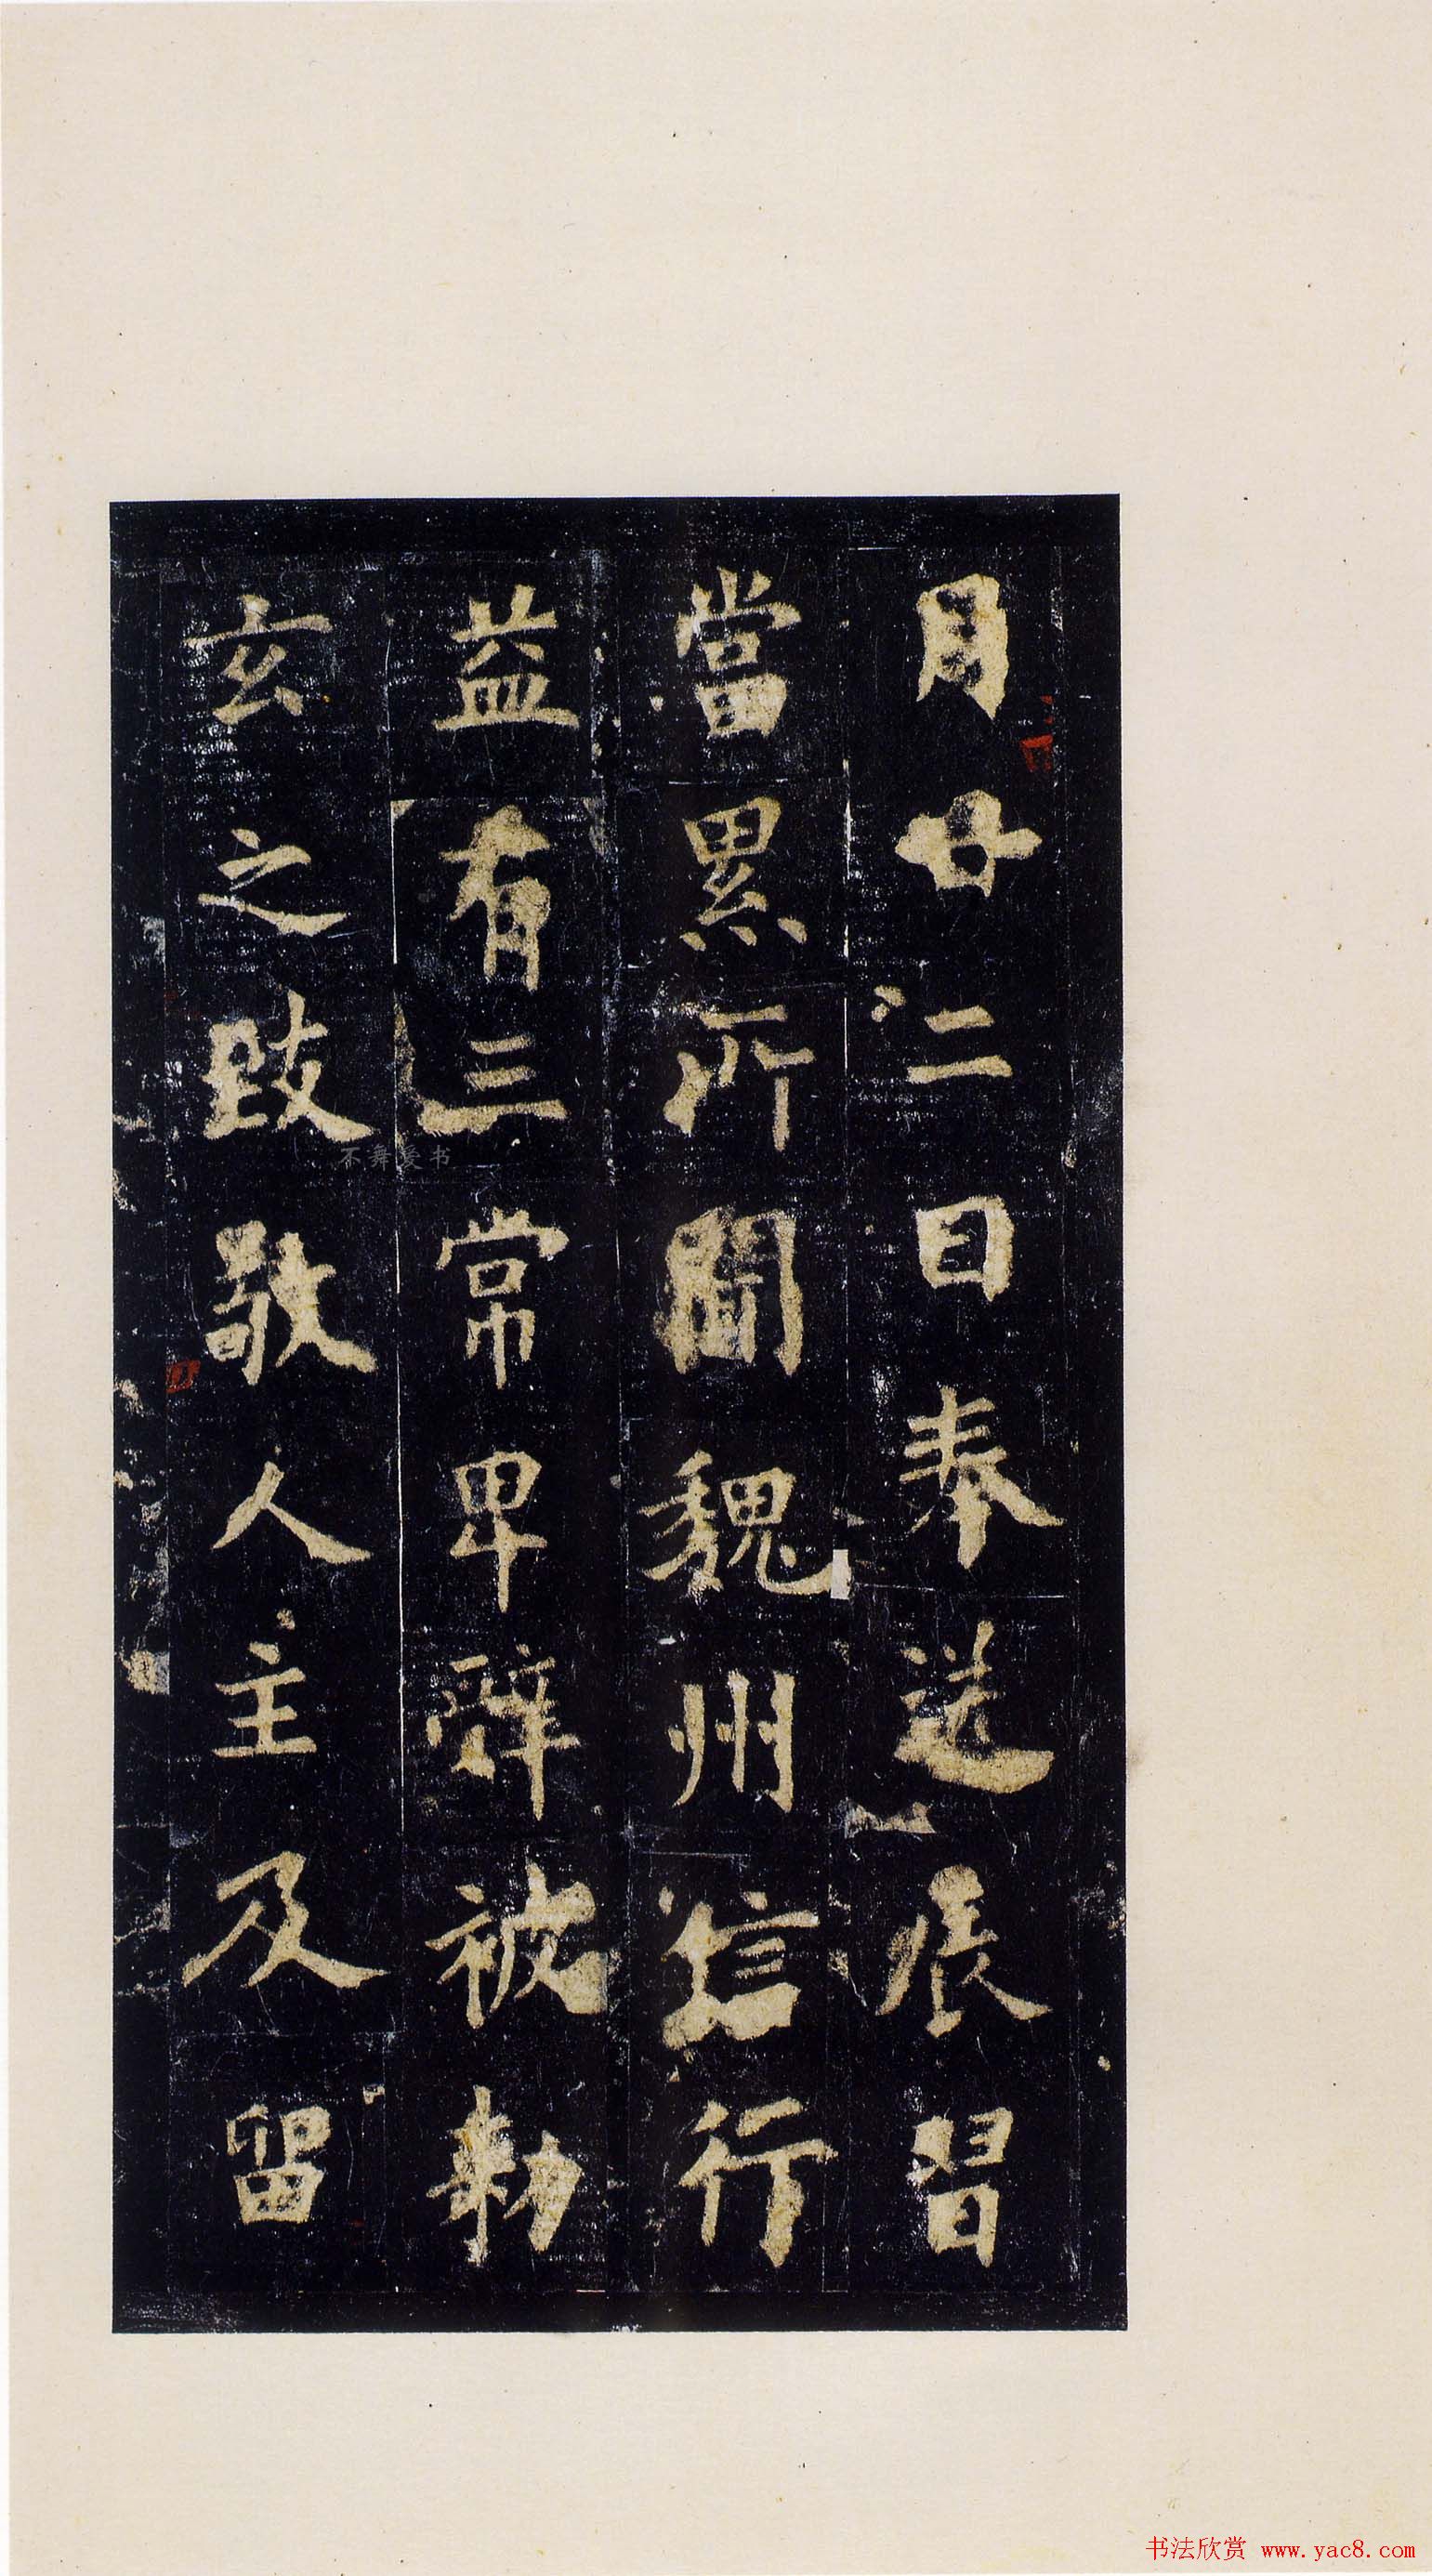 月廿二日奉送習
當累所聞魏州信行
益有三常卑辭被勅
玄之致敬人主及留
不舞爱书
书法欣赏 www.yac8.com